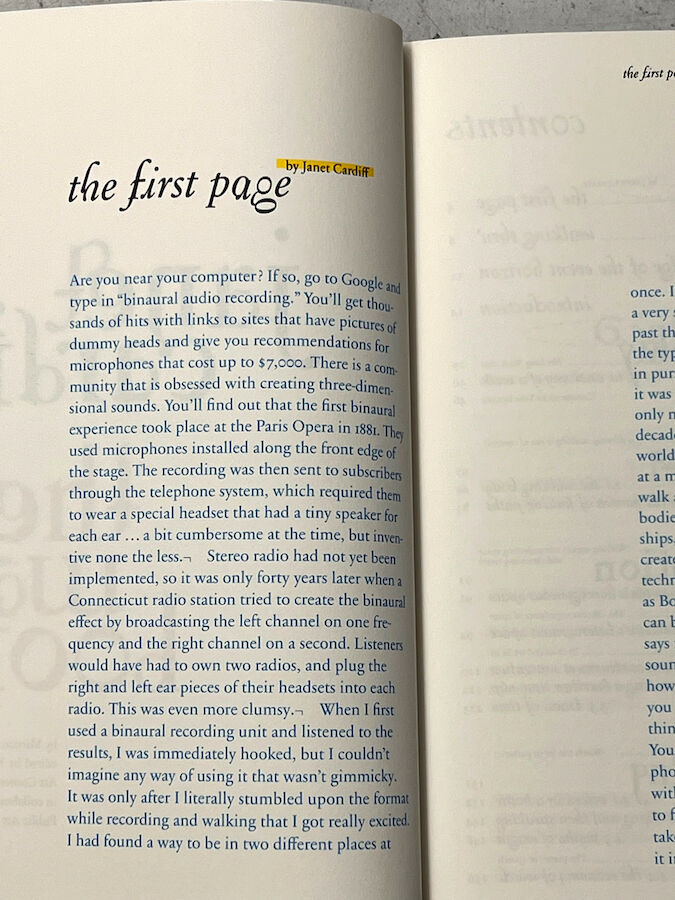 the first page
by Janet Cardiff
Are you near your computer? If so, go to Google and
type in “binaural audio recording.” You’ll get thou-
sands of hits with links to sites that have pictures of
dummy heads and give you recommendations for
microphones that cost up to $7,000. There is a com-
munity that is obsessed with creating three-dimen-
sional sounds. You’ll find out that the first binaural
experience took place at the Paris Opera in 1881. They
used microphones installed along the front edge of
the stage. The recording was then sent to subscribers
through the telephone system, which required them
to wear a special headset that had a tiny speaker for
each ear … a bit cumbersome at the time, but inven-
tive none the less.¬ Stereo radio had not yet been
implemented, so it was only forty years later when a
Connecticut radio station tried to create the binaural
effect by broadcasting the left channel on one fre-
quency and the right channel on a second. Listeners
would have had to own two radios, and plug the
right and left ear pieces of their headsets into each
radio. This was even more clumsy.¬ When I first
used a binaural recording unit and listened to the
results, I was immediately hooked, but I couldn’t
imagine any way of using it that wasn’t gimmicky.
It was only after I literally stumbled upon the format
while recording and walking that I got really excited.
I had found a way to be in two different places at
the first
once. I
a very
past
the
in
it was
only
decade
world
at a
walk
ships.
as
can
says
how
you
You
to
it